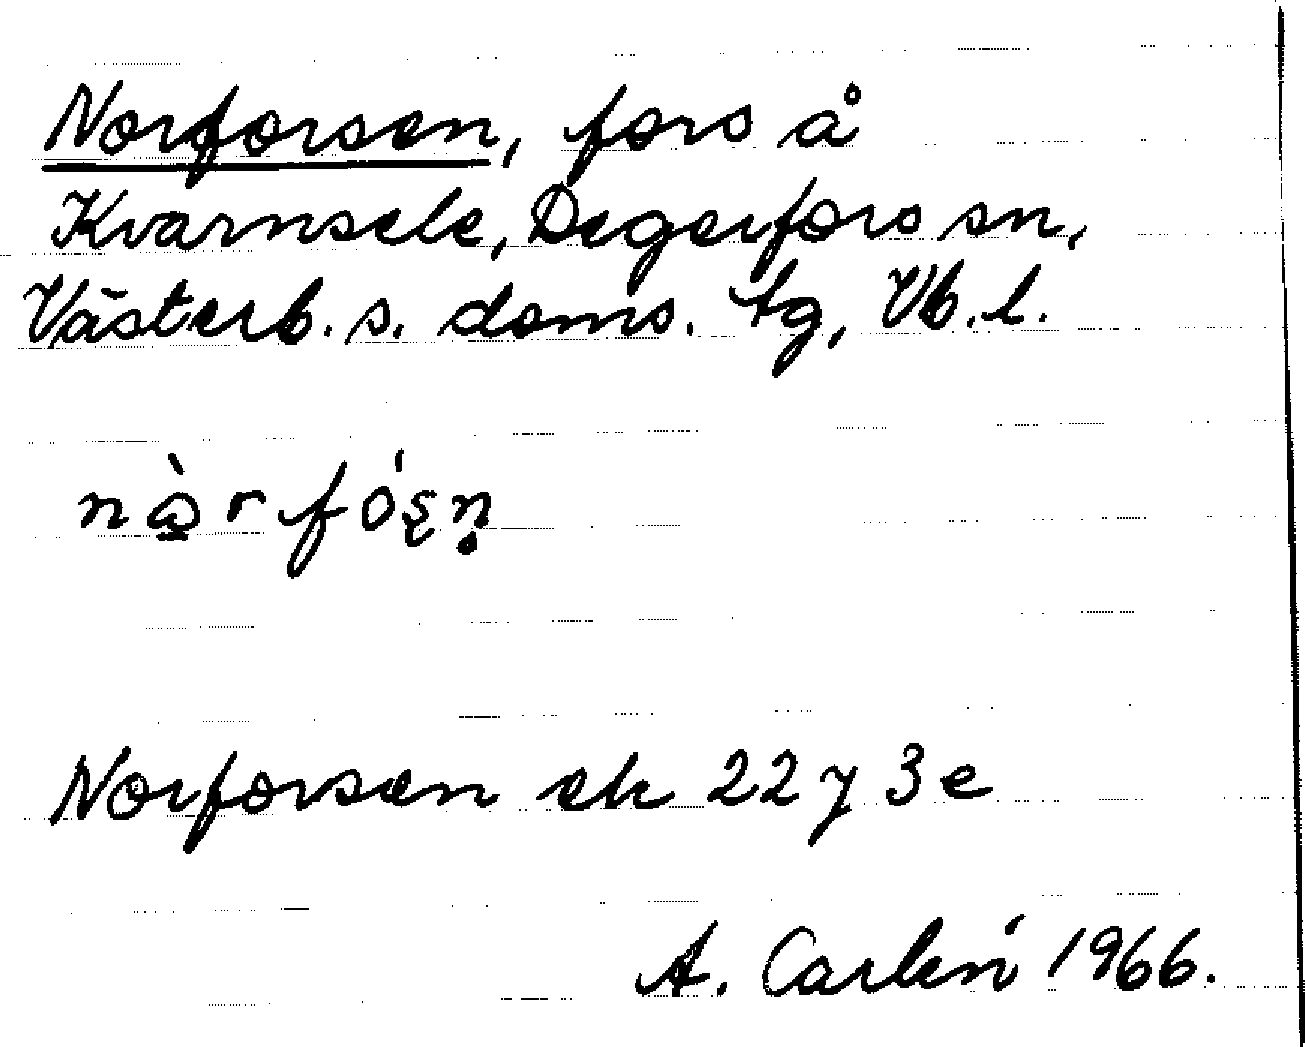 Norforsen, fors å
Kvarnsele, Degerfors sn,
Västerb. s. doms. tg, Vb. l.
Norforsen ek 22 y 3 e
A. Carlén 1966.